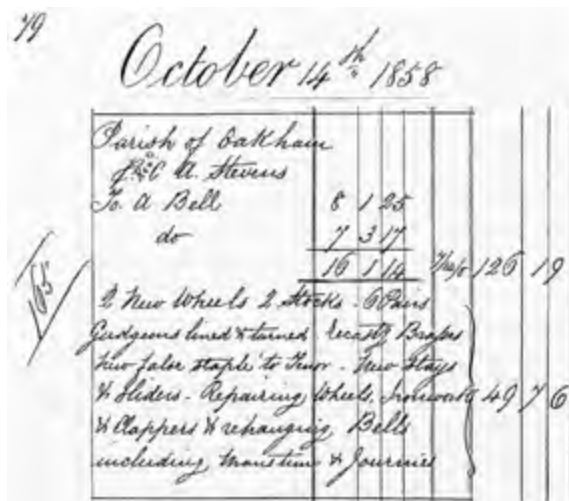 79
October 14th 1858
Parish of Oakham
C A. Stevens
To A Bell 8 1 25
do 7 3 17
16 1 14 126 19
165
2 New Wheels 2 Stocks - 6 Pairs
Gudgeons lined & turned Recastg Brasses
New false staple to Tenor - New Stays
& Sliders - Repairing Wheels, Ironwork 49 7 6
& Clappers & rehanging Bells
including & Journies